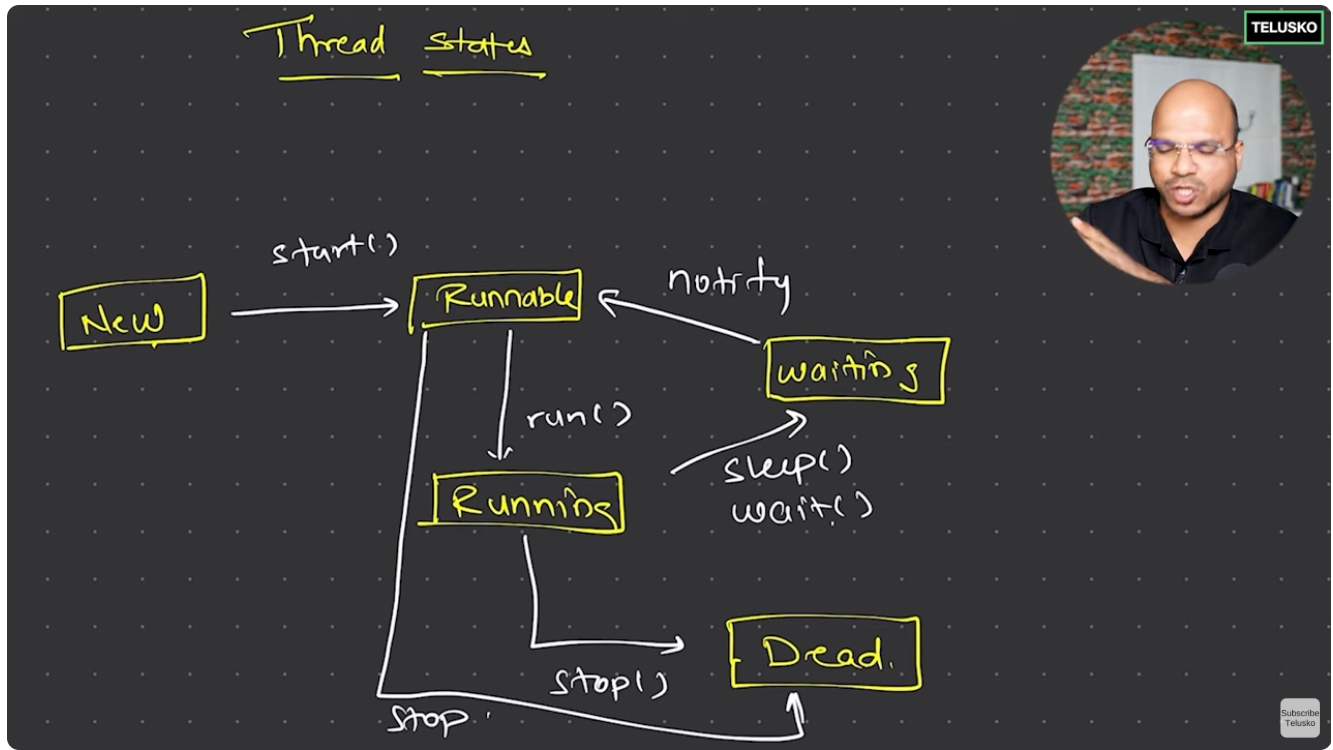 TELUSKO
Thread states
start()
New
Runnable
notify
waiting
run()
sleep()
wait()
Running
Dead.
stop()
stop
Subscribe
Telusko